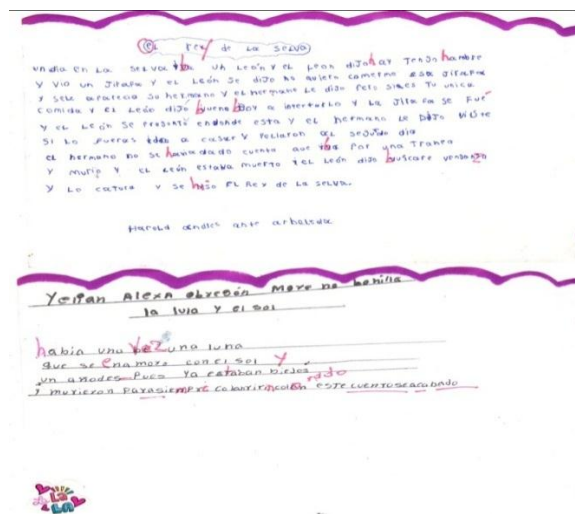 EL rex de La seLva
un dia en La seLva iba un León y el Leon dijo hay Tenjo hambre
y vio un Jirafa y el León se dijo no quiero camerme esta Jirafa
y sele aparecio so hermano y el hermano Le dijo pero si nes Tu unica
comida y el León dijo bueno boy a intertarLo y La Jirafa se Fue
y el León se presintó en donde esta y el hermano Le Dijo
si Lo fueras a casar y peliaron aL seguido dia
el hermano no se habia dado cuenta que iba por una Trampa
y murio y el León estava muerto y el León dijo buscare venganza
y Lo caturo y se hiso el Rex de La seLva.
HaroLd andres ante arboleda
Yeiran Alexa obregón More no bonilla
la luia y el sol
habia una vez una luna
que se enamoro con el sol y
un años des pues ya estaban biejos
y murieron para siempre colorin colorado este cuento se acabado
La La